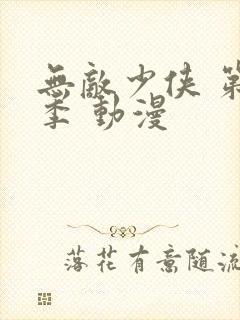 無敵少俠 第
季 動漫
落花有意随流